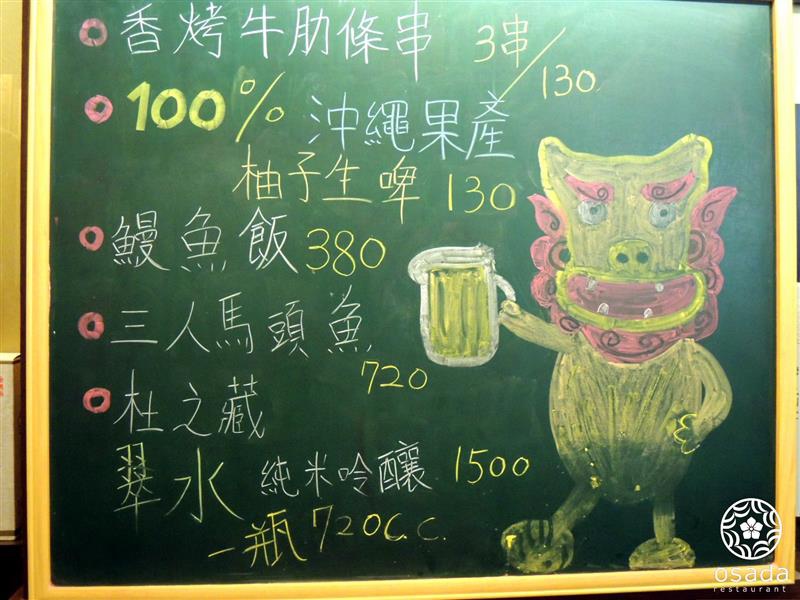 香烤牛肋條串 3串/130
100% 沖繩果產
柚子生啤 130
鰻魚飯 380
三人馬頭魚
720
杜之藏
翠水 純米吟釀 1500
一瓶720c.c.
osada
restaurant